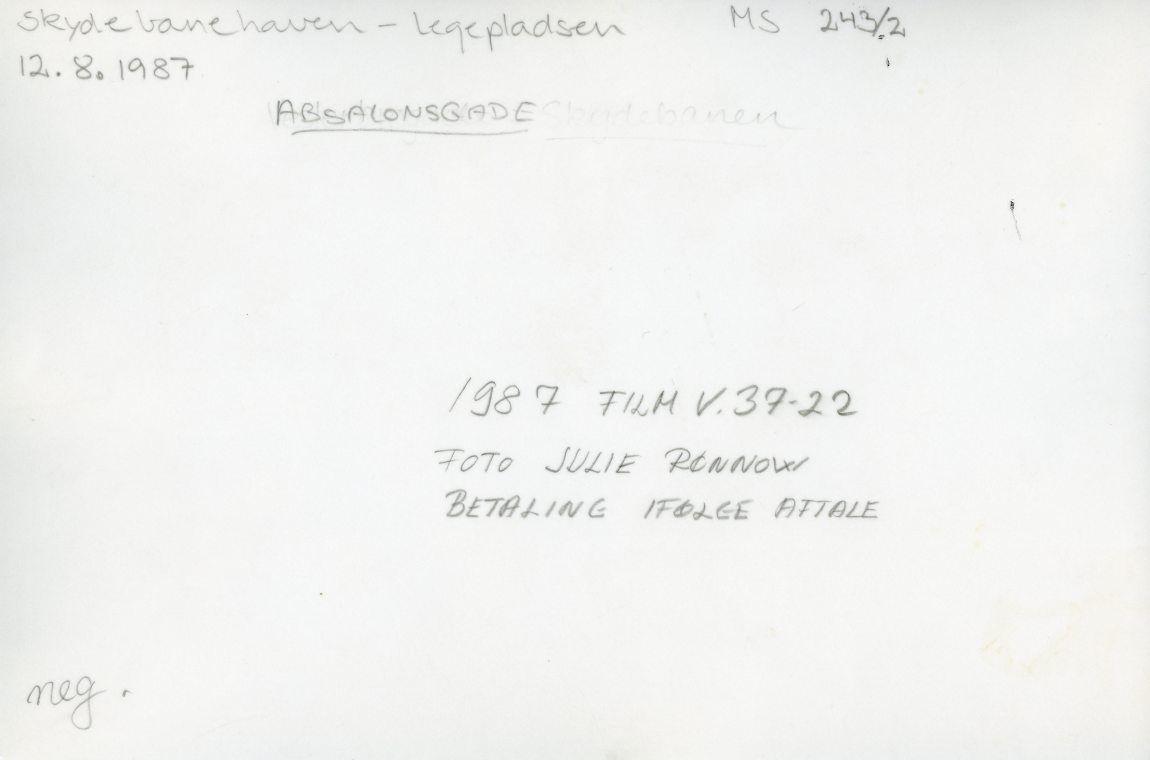 Skydebanehaven - Legepladsen MS 243/2
12.8.1987
ABSALONSGADE Skydebanen
1987 FILM V.37-22
FOTO JULIE RØNNOW
BETALING IFØLGE AFTALE
neg.